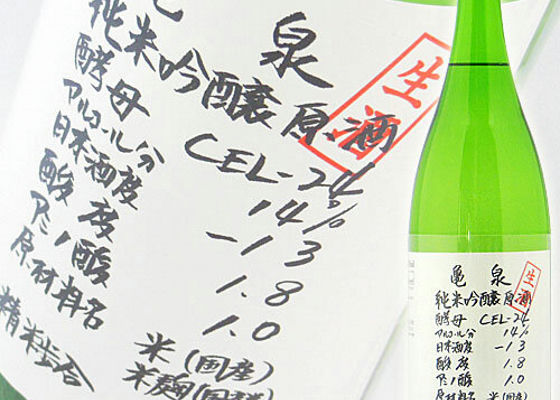 亀 泉
純米吟醸原酒
生酒
酵母 CEL-24
アルコール分 14%
日本酒度 -13
酸度 1.8
アミノ酸 1.0
原材料名 米(国産)
米麹(国産米)
精米歩合
亀 泉
純米吟醸原酒
生酒
酵母 CEL-24
アルコール分 14%
日本酒度 -13
酸度 1.8
アミノ酸 1.0
原材料名 米(国産)